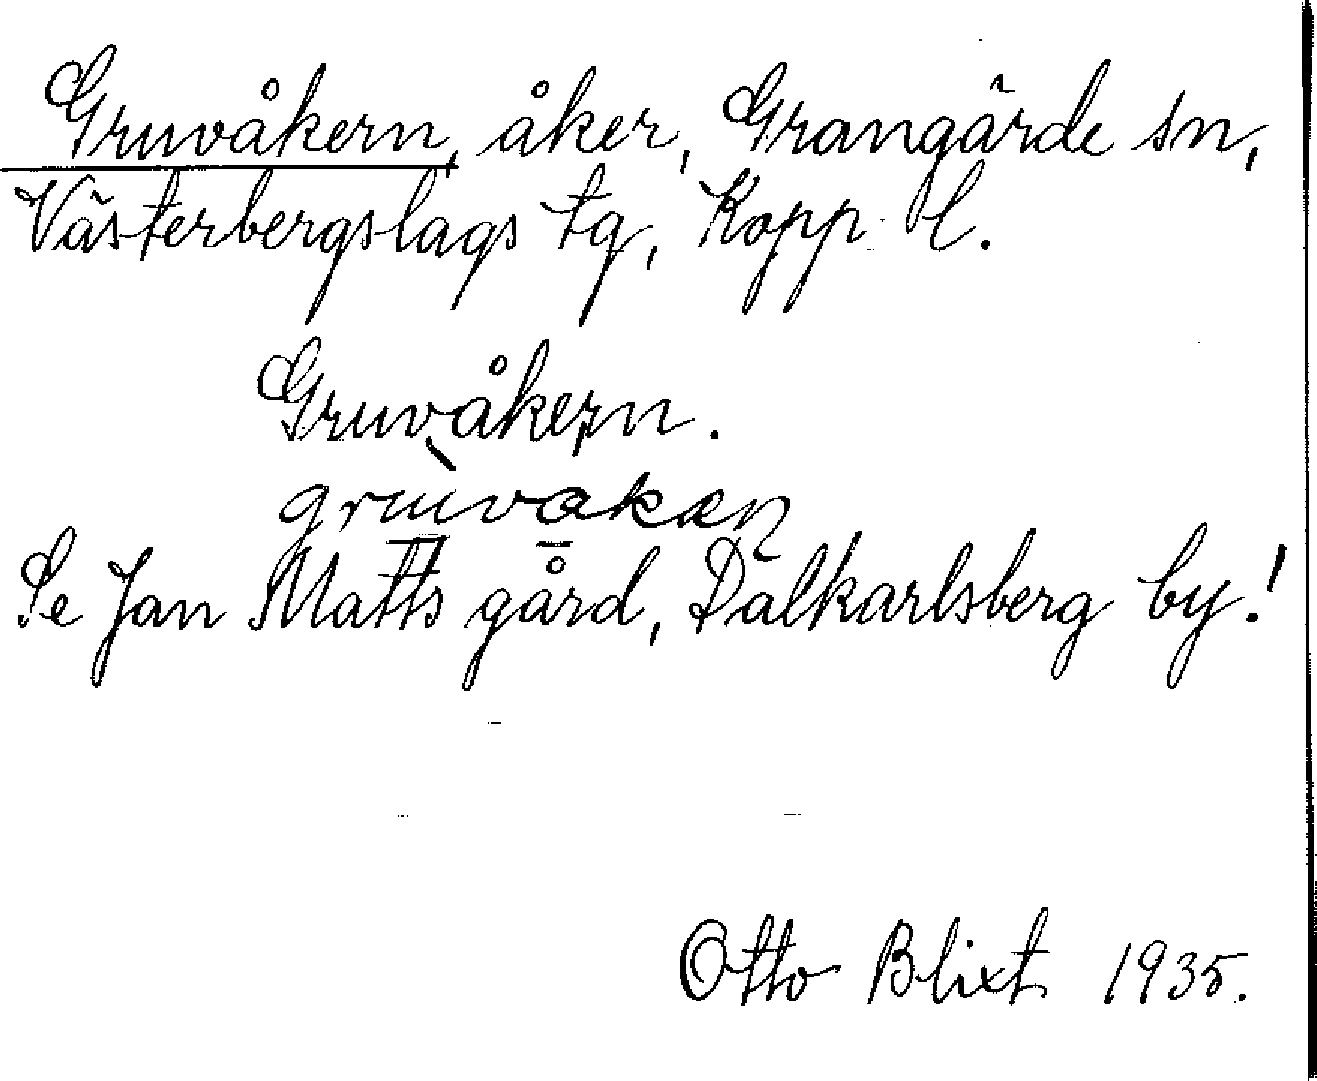 Gruvåkern, åker, Grangärde sn,
Västerbergslags tg, Kopp. l.
Gruvåkern.
Se Jan Matts gård, Dalkarlsberg by!
Otto Blixt 1935.